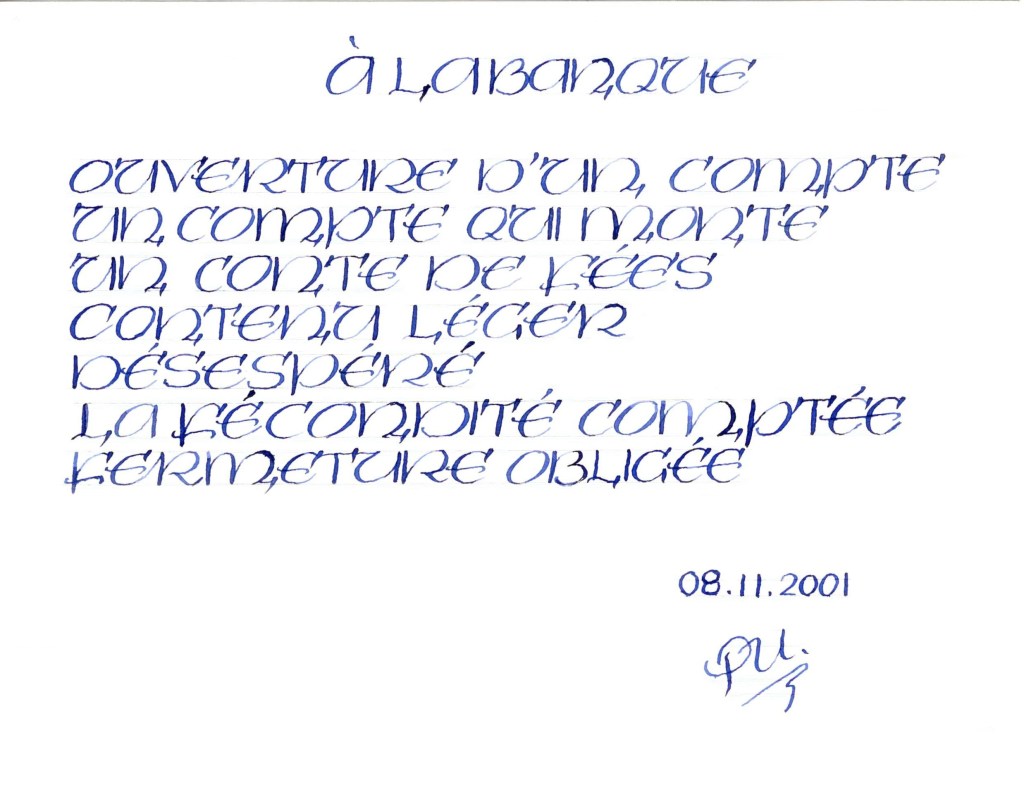 À LA BANQUE
OUVERTURE D'UN COMPTE
UN COMPTE QUI MONTE
UN CONTE DE FÉES
CONTENU LÉGER
DÉSESPÉRÉ
LA FÉCONDITÉ COMPTÉE
FERMETURE OBLIGÉE
08.11.2001